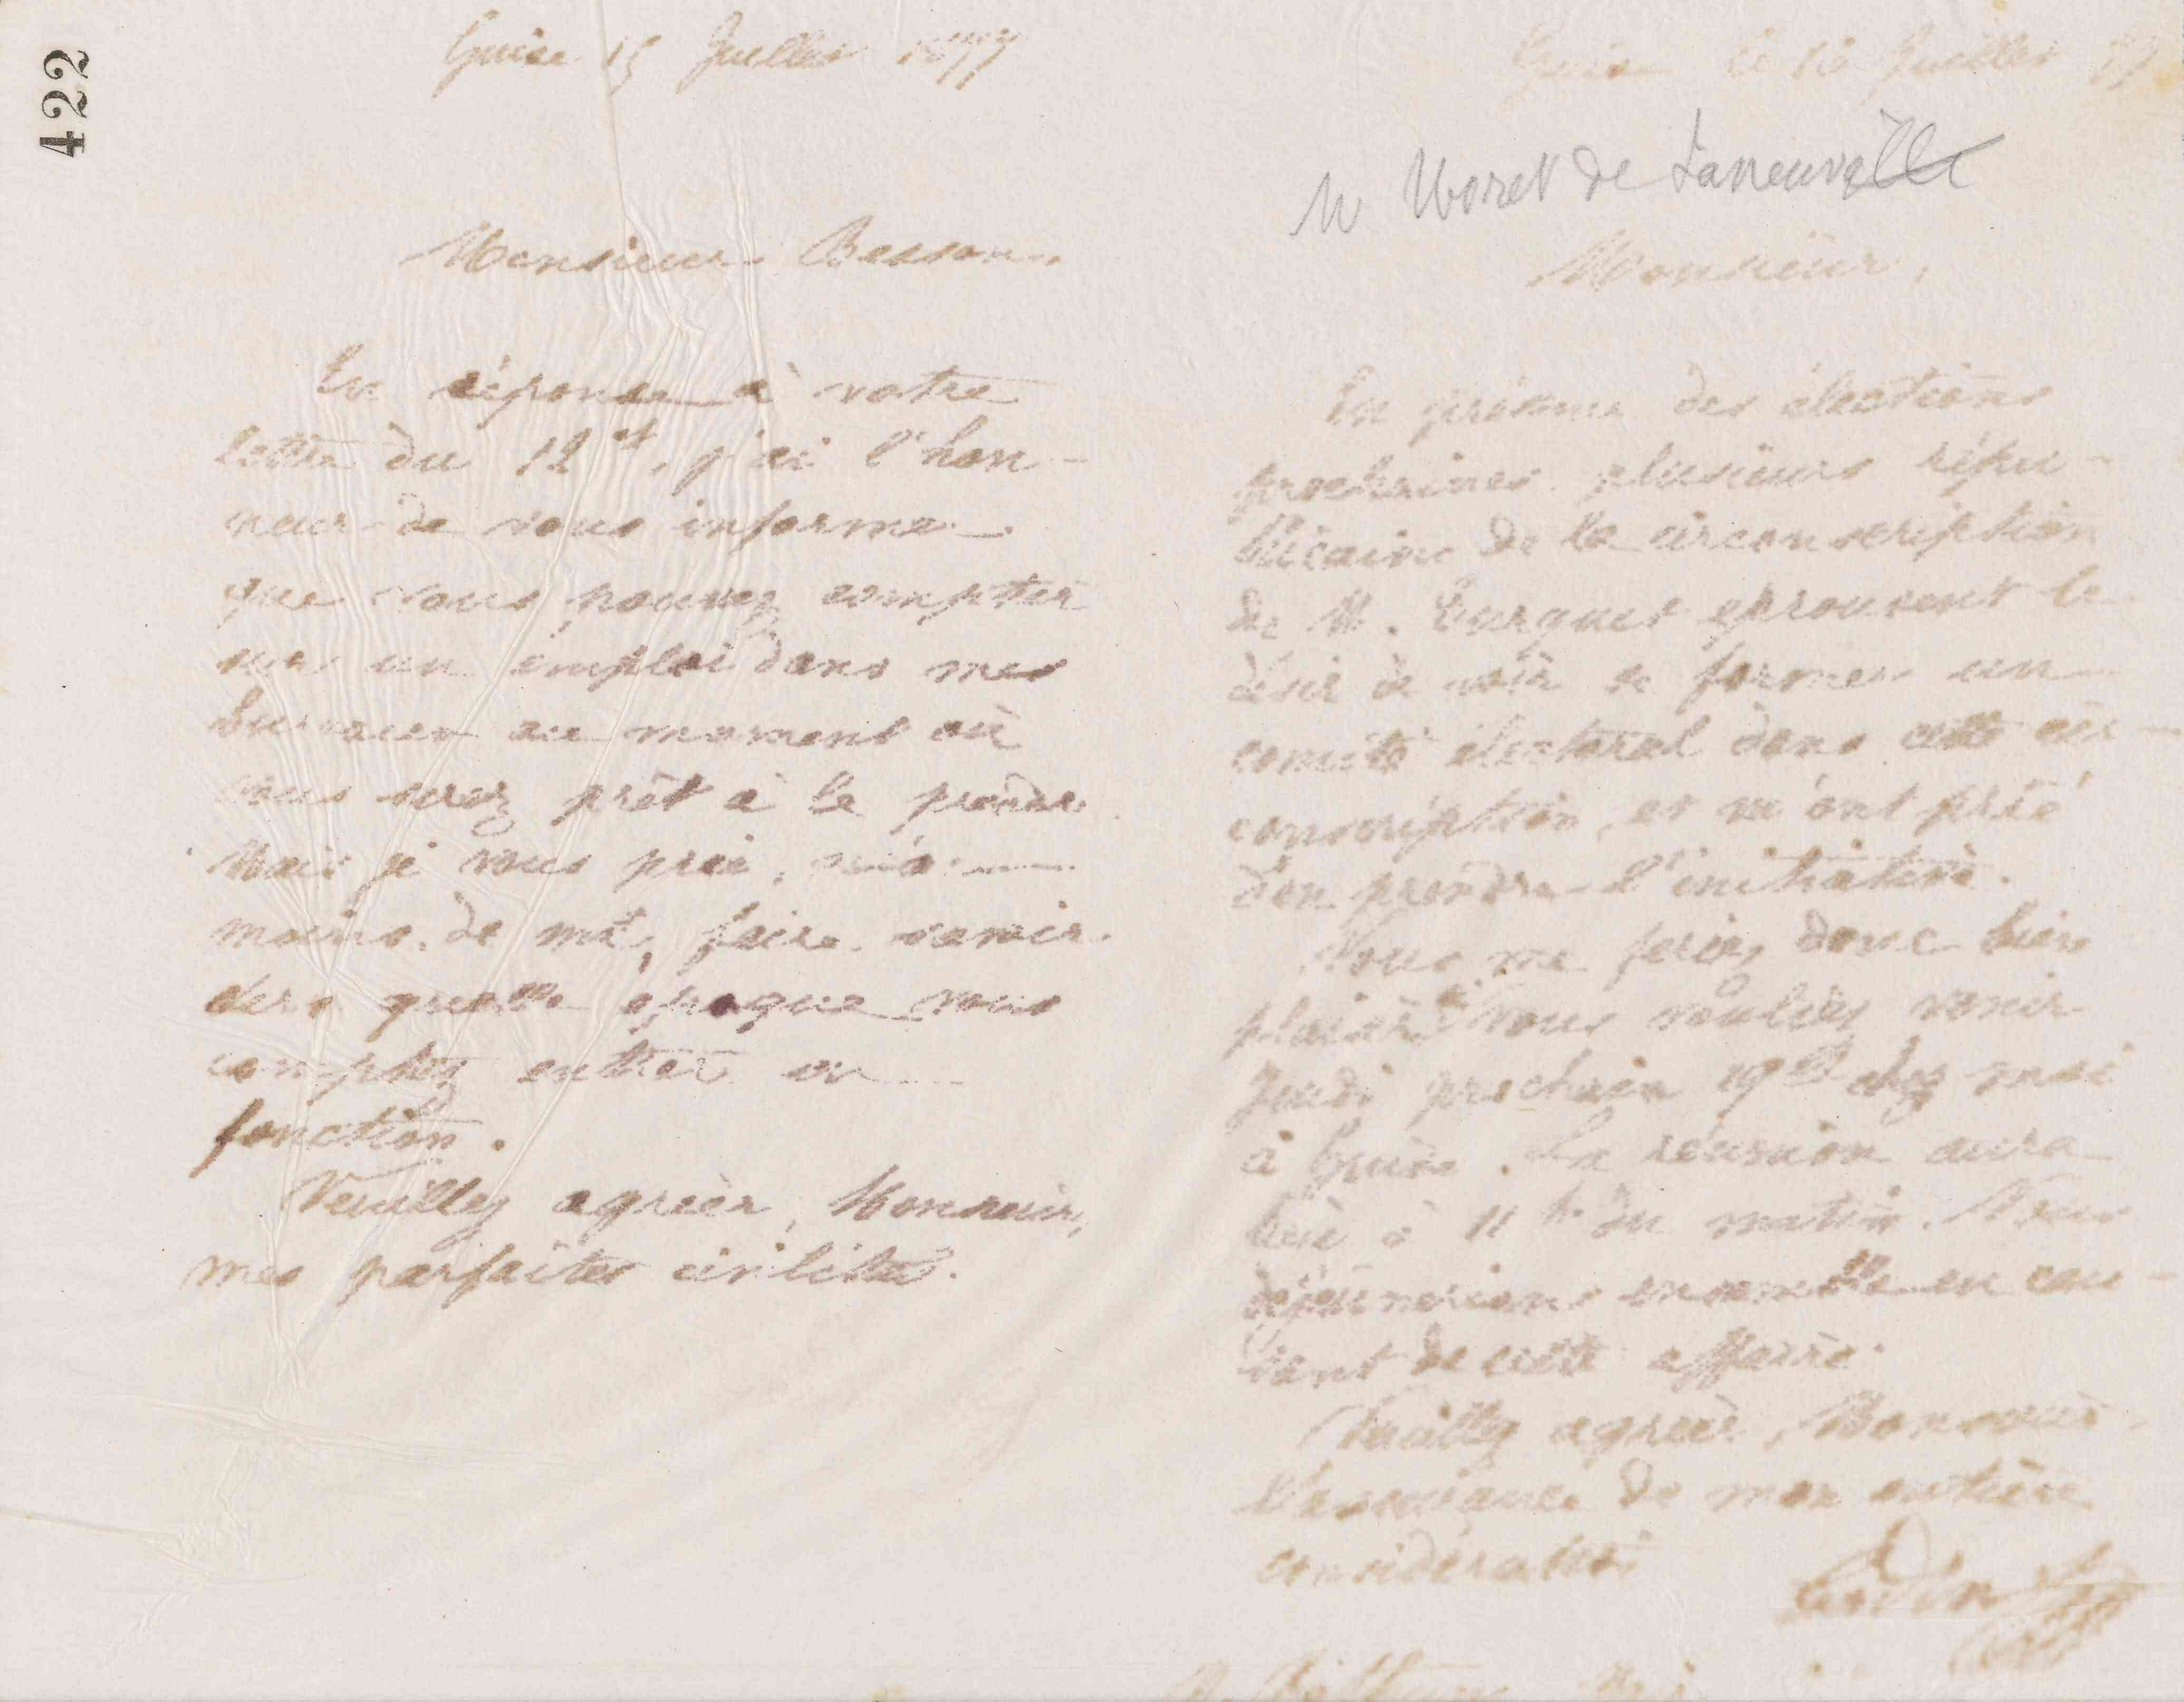 422
Guise 15 Juillet 1877
Monsieur Besson,
En réponse à votre
lettre du 12 ct, j'ai l'hon-
neur de vous informer
que vous pouvez compter
sur un emploi dans mes
bureaux au moment où
vous serez prêt à le prendre
Mais je vous prie, néan-
moins, de me faire savoir
vers quelle époque vous
comptez entrer en
fonction.
Veuillez agréer, Monsieur,
mes parfaites civilités.
Guise le 16 Juillet 77
M Moret de Laneuville
Monsieur,
En présence des élections
prochaines plusieurs répu-
blicains de la circonscription
de M. Turquet éprouvent le
désir de voir se former un
comité électoral dans cette cir-
conscription, et m'ont prié
d'en prendre l'initiative.
Vous me feriez donc bien
plaisir si vous vouliez venir
Jeudi prochain 19 ct chez moi
à Guise. La réunion aura
lieu à 11 h du matin. Nous
déjeunerions ensemble en cau-
sant de cette affaire.
Veuillez agréer, Monsieur,
l'assurance de mon entière
considération
Godin